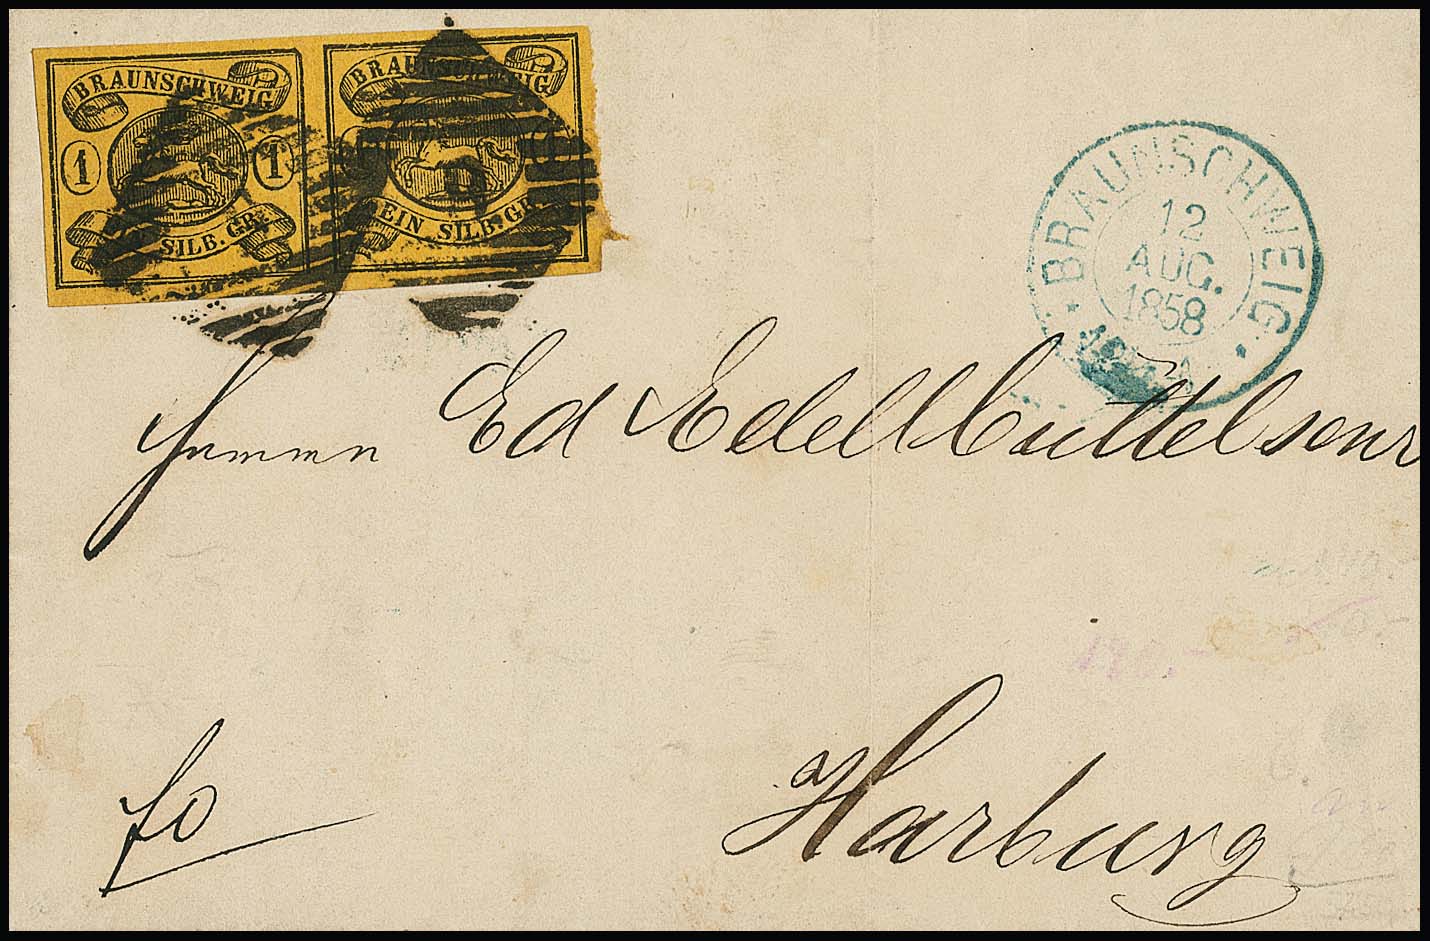 BRAUNSCHWEIG
1 1
SILB. GR.
BRAUNSCHWEIG
EIN SILB. GR.
BRAUNSCHWEIG
12
AUG.
1858
Herren Ed Edel Büttelsenr
Harburg
fo